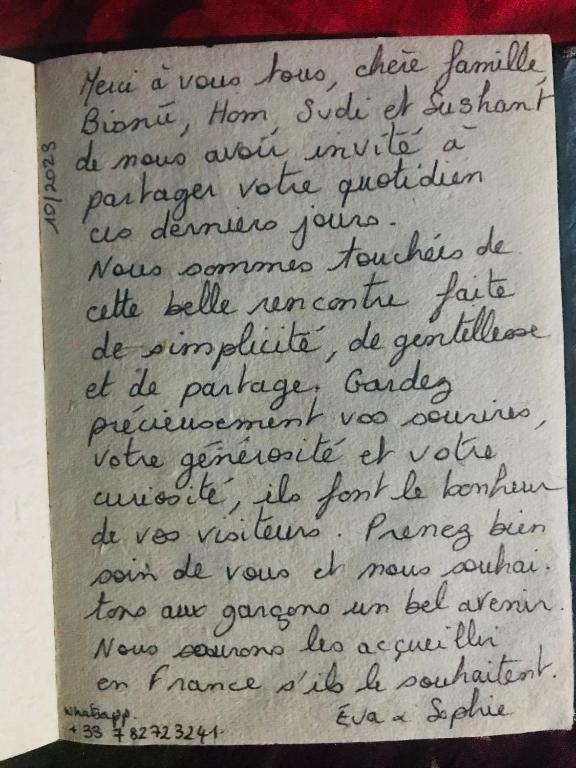 Merci à vous tous, chère famille,
Bisnü, Hom, Sudi et Sushant
de nous avoir invité à
partager votre quotidien
ces derniers jours.
Nous sommes touchées de
cette belle rencontre faite
de simplicité, de gentillesse
et de partage. Gardez
précieusement vos sourires,
votre générosité et votre
curiosité, ils font le bonheur
de vos visiteurs. Prenez bien
soin de vous et nous souhai-
tons aux garçons un bel avenir.
Nous saurons les accueillir
en France s'ils le souhaitent.
Éva & Sophie
whatsapp.
+33 782723241
10/2023